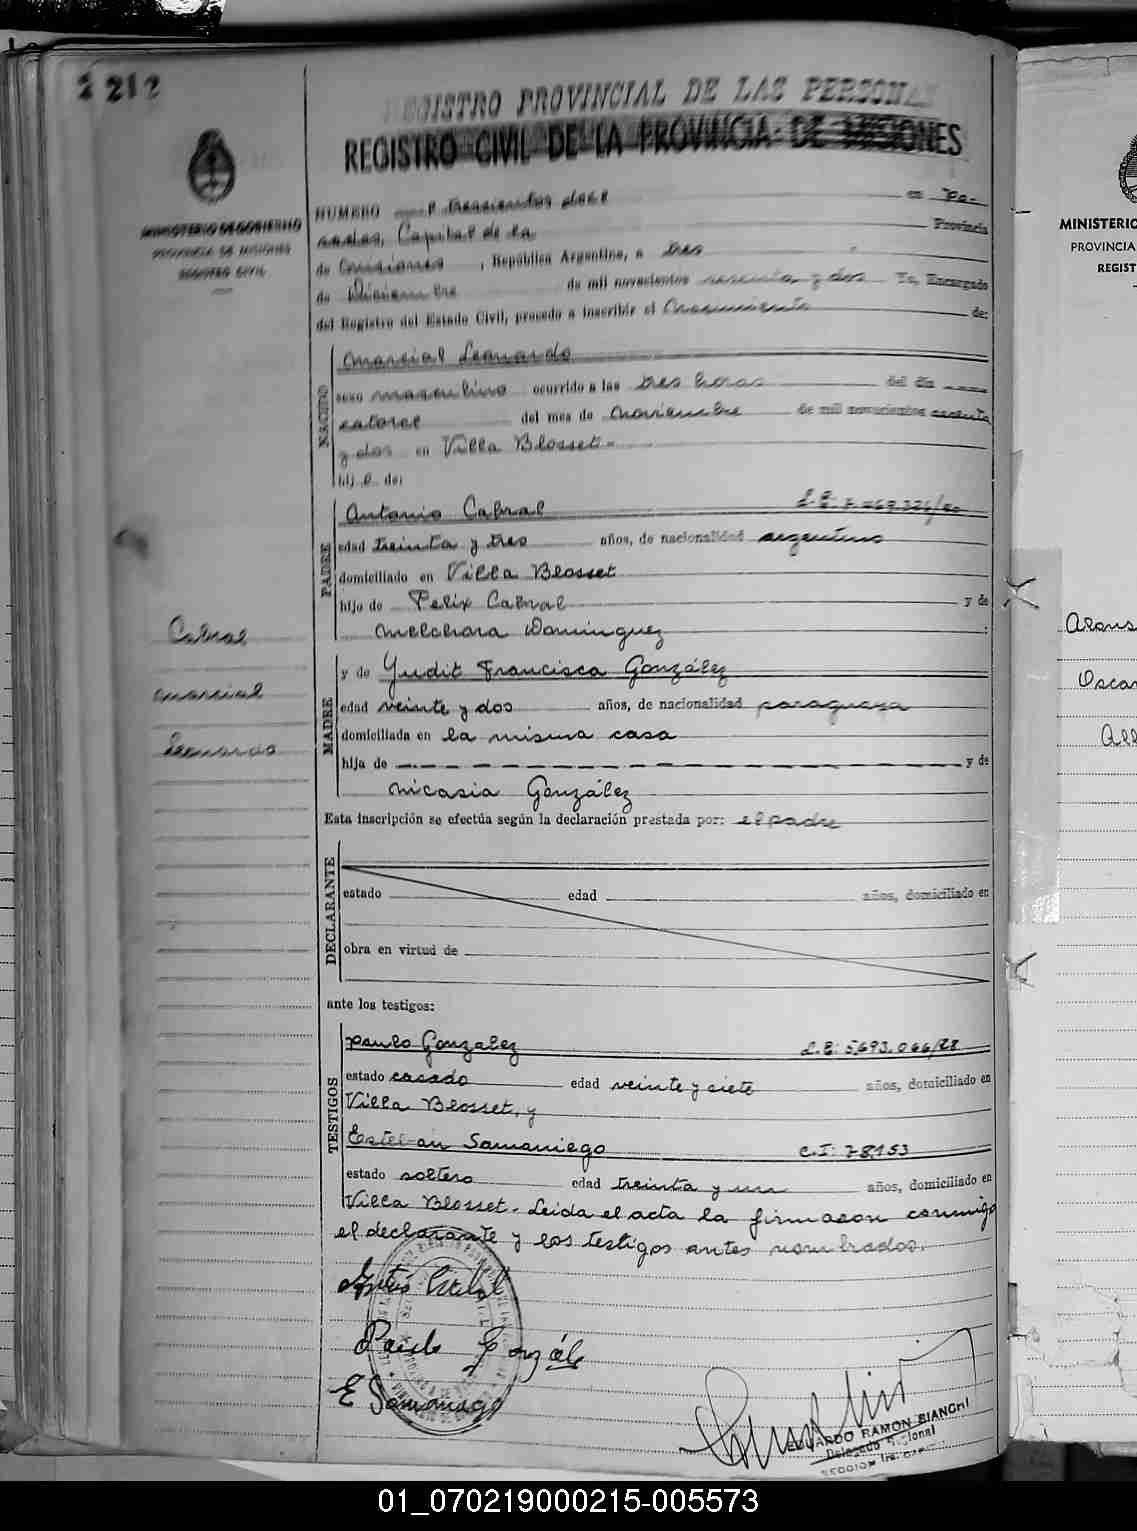 2 212
REGISTRO PROVINCIAL DE LAS PERSONAS
REGISTRO CIVIL DE LA PROVINCIA DE MISIONES
MINISTERIO DE GOBIERNO
PROVINCIA DE MISIONES
REGISTRO CIVIL
NUMERO mil trescientos doce en Po-
sadas, Capital de la Provincia
de Misiones, República Argentina, a tres
de Diciembre de mil novecientos sesenta y dos Yo, Encargado
del Registro del Estado Civil, procedo a inscribir el Nacimiento de:
NACIDO
Marcial Leonardo
sexo masculino ocurrido a las tres horas del día
catorce del mes de Noviembre de mil novecientos sesenta
y dos en Villa Blosset-
hijo de:
PADRE
Antonio Cabral L.E: 7.
edad treinta y tres años, de nacionalidad argentino
domiciliado en Villa Blosset
hijo de Felix Cabral y de
Melchora Dominguez :
MADRE
y de Yudit Francisca González
edad veinte y dos años, de nacionalidad paraguaya
domiciliada en la misma casa
hija de y de
Nicasia González
Esta inscripción se efectúa según la declaración prestada por: el padre
Cabral
Marcial
Leonardo
DECLARANTE
estado edad años, domiciliado en
obra en virtud de
ante los testigos:
TESTIGOS
Paulo González L.E: 5.693.066/28
estado casado edad veinte y siete años, domiciliado en
Villa Blosset, y
Esteban Samaniego C.I: 78153
estado soltero edad treinta y un años, domiciliado en
Villa Blosset. Leida el acta la firmaron conmigo
el declarante y los testigos antes nombrados.
Paulo González
E Samaniego
EDUARDO RAMON BIANCHI
Delegado Regional
SECCION 1ra. CAPITAL
MINISTERIO
PROVINCIA
REGIST
Alons
Oscar
All
01_070219000215-005573